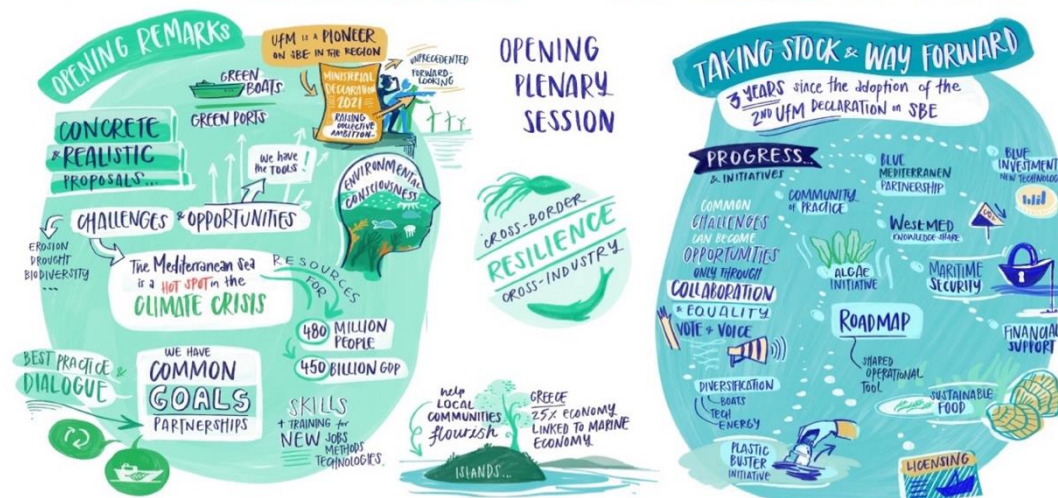 OPENING REMARKS
UfM IS A PIONEER
ON SBE IN THE REGION
MINISTERIAL
DECLARATION
2021
RAISING
COLLECTIVE
AMBITION...
UNPRECEDENTED
FORWARD-
LOOKING
GREEN
BOATS
GREEN PORTS
CONCRETE
& REALISTIC
PROPOSALS...
We have
the TOOLS!
ENVIRONMENTAL
CONSCIOUSNESS
CHALLENGES & OPPORTUNITIES
EROSION
DROUGHT
BIODIVERSITY
...
The Mediterranean Sea
is a HOT SPOT in the
CLIMATE CRISIS
RESOURCES
FOR
480 MILLION
PEOPLE
450 BILLION GDP
BEST PRACTICE &
DIALOGUE
WE HAVE
COMMON
GOALS
PARTNERSHIPS
SKILLS
+ TRAINING for
NEW JOBS
METHODS
TECHNOLOGIES
OPENING
PLENARY
SESSION
CROSS-BORDER
RESILIENCE
CROSS-INDUSTRY
help
LOCAL
COMMUNITIES
flourish
ISLANDS...
GREECE
25% ECONOMY
LINKED TO MARINE
ECONOMY
TAKING STOCK & WAY FORWARD
3 YEARS since the adoption of the
2ND UfM DECLARATION on SBE
PROGRESS...
& INITIATIVES
COMMON
CHALLENGES
CAN BECOME
OPPORTUNITIES
ONLY THROUGH
COLLABORATION
& EQUALITY
VOTE & VOICE
DIVERSIFICATION
BOATS
TECH
ENERGY
PLASTIC
BUSTER
INITIATIVE
COMMUNITY
of PRACTICE
BLUE
MEDITERRANEN
PARTNERSHIP
BLUE
INVESTMENT
NEW TECHNOLOG
WESTMED
KNOWLEDGE-SHARE
ALGAE
INITIATIVE
MARITIME
SECURITY
ROADMAP
SHARED
OPERATIONAL
TOOL
FINANCIAL
SUPPORT
SUSTAINABLE
FOOD
LICENSING